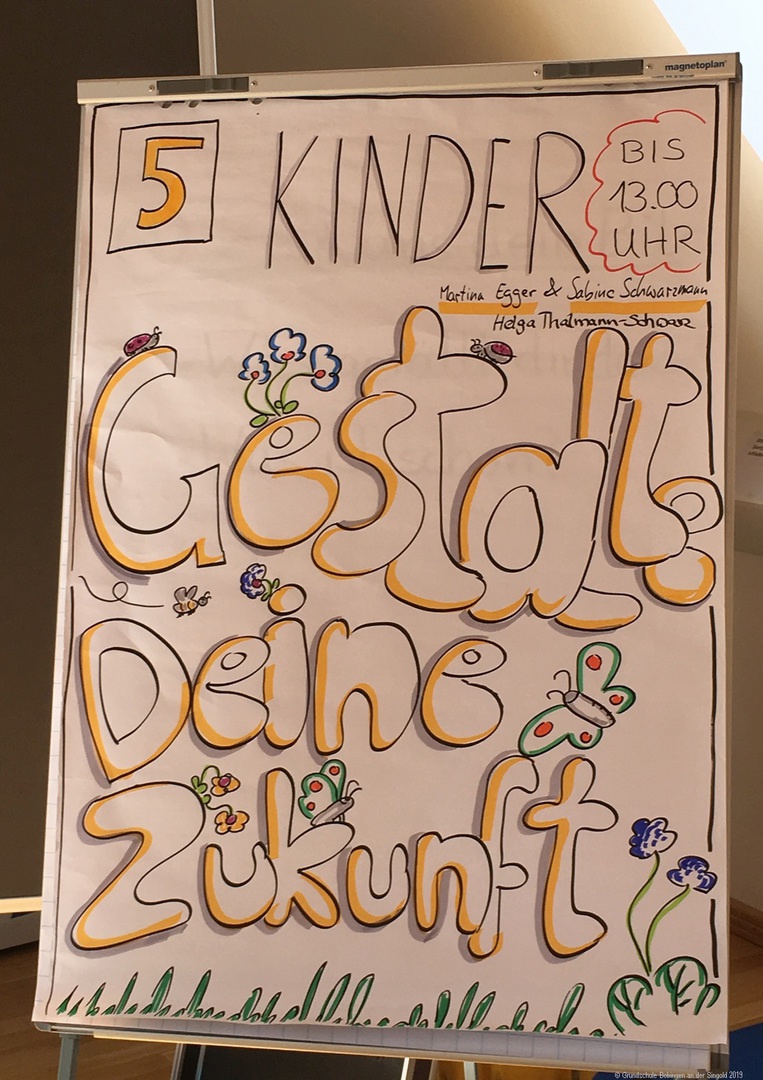 magnetoplan®
5 KINDER
BIS
13.00
UHR
Martina Egger & Sabine Schwarzmann
Helga Thalmann-Schwarz
Gestalte
Deine
Zukunft
© Grundschule Bobingen an der Singold 2019